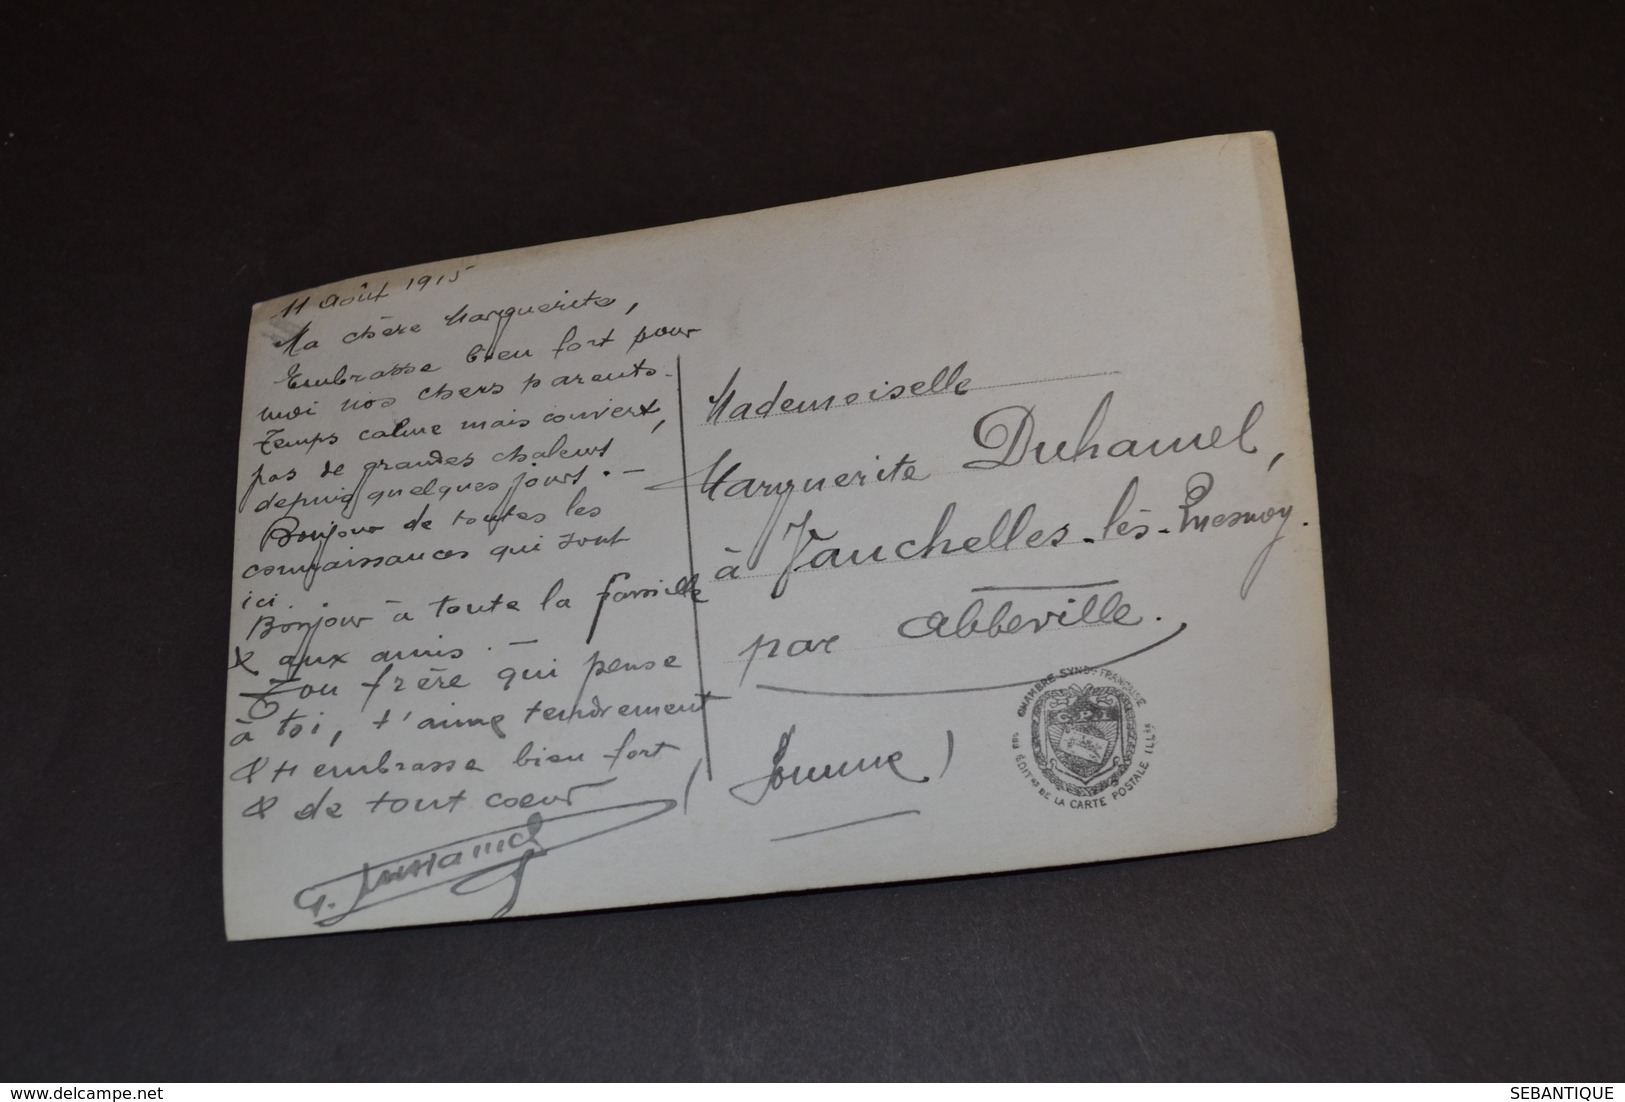 11 Août 1915
Ma chère Marguerite,
Embrasse bien fort pour
moi nos chers parents.
Temps calme mais couvert,
pas de grandes chaleurs
depuis quelques jours. -
Bonjour de toutes les
connaissances qui sont
ici.
Bonjour à toute la famille
& aux amis. -
Ton frère qui pense
à toi, t'aime tendrement
& t'embrasse bien fort
& de tout cœur
G.
Mademoiselle
Marguerite Duhamel,
à Vauchelles-lès-Quesnoy.
par Abbeville.
(Somme)
CHAMBRE SYND.LE FRANÇAISE
DES ÉDIT.RS DE LA CARTE POSTALE ILL.ÉE
www.delcampe.net
SEBANTIQUE